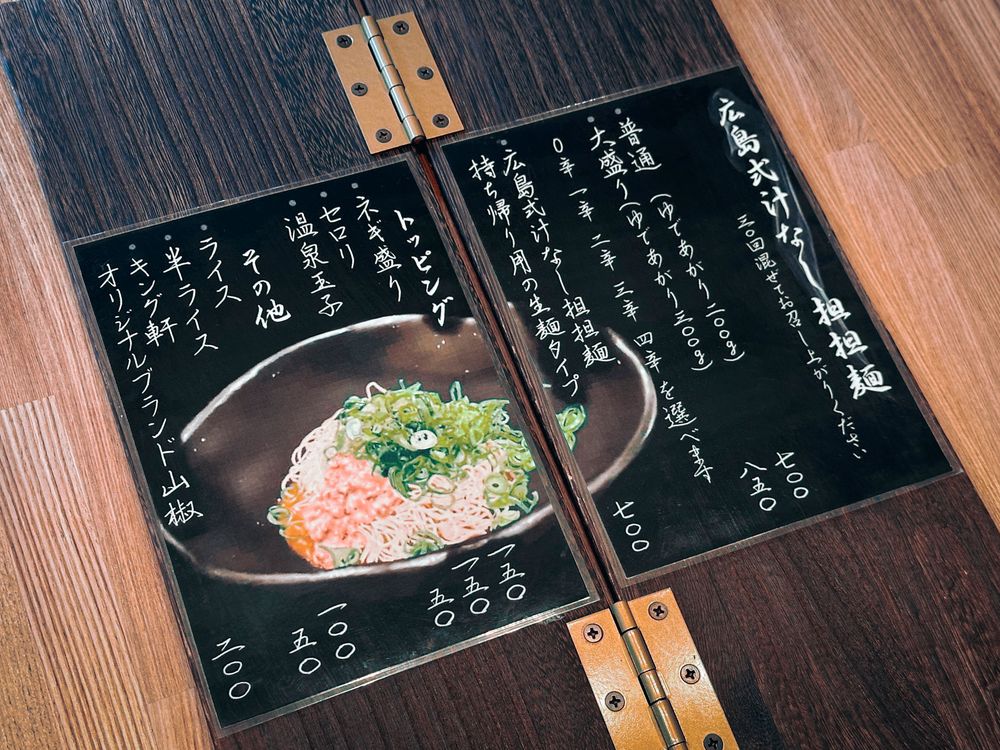 広島式汁なし担担麺
三〇回混ぜてお召し上がりください
普通（ゆであがり二〇〇g） 七〇〇
大盛り（ゆであがり三〇〇g） 八五〇
〇辛 一辛 二辛 三辛 四辛 を選べます
広島式汁なし担担麺
持ち帰り用の生麺タイプ 七〇〇
トッピング
ネギ盛り 一五〇
セロリ 一五〇
温泉玉子 五〇
その他
ライス 一〇〇
半ライス 五〇
キング軒
オリジナルブランド山椒 二〇〇